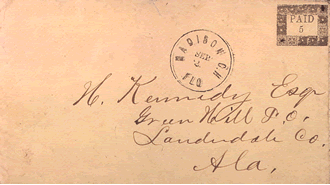 PAID
5
MADISON C.H.
SEP
FLO
H. Kennedy Esqr
Green Hill P.O.
Lauderdale Co.
Ala,